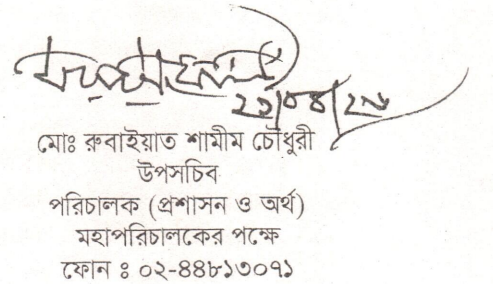 মোঃ রুবাইয়াত শামীম চৌধুরী
উপসচিব
পরিচালক (প্রশাসন ও অর্থ)
মহাপরিচালকের পক্ষে
ফোন ঃ ০২-৪৪৮১৩০৭১